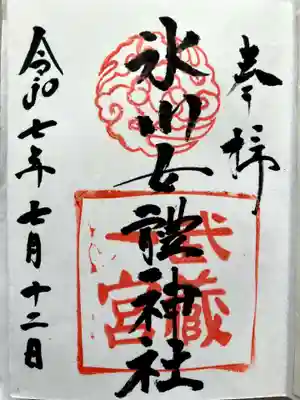 奉拝
武蔵
一宮
氷川女體神社
令和七年七月十二日